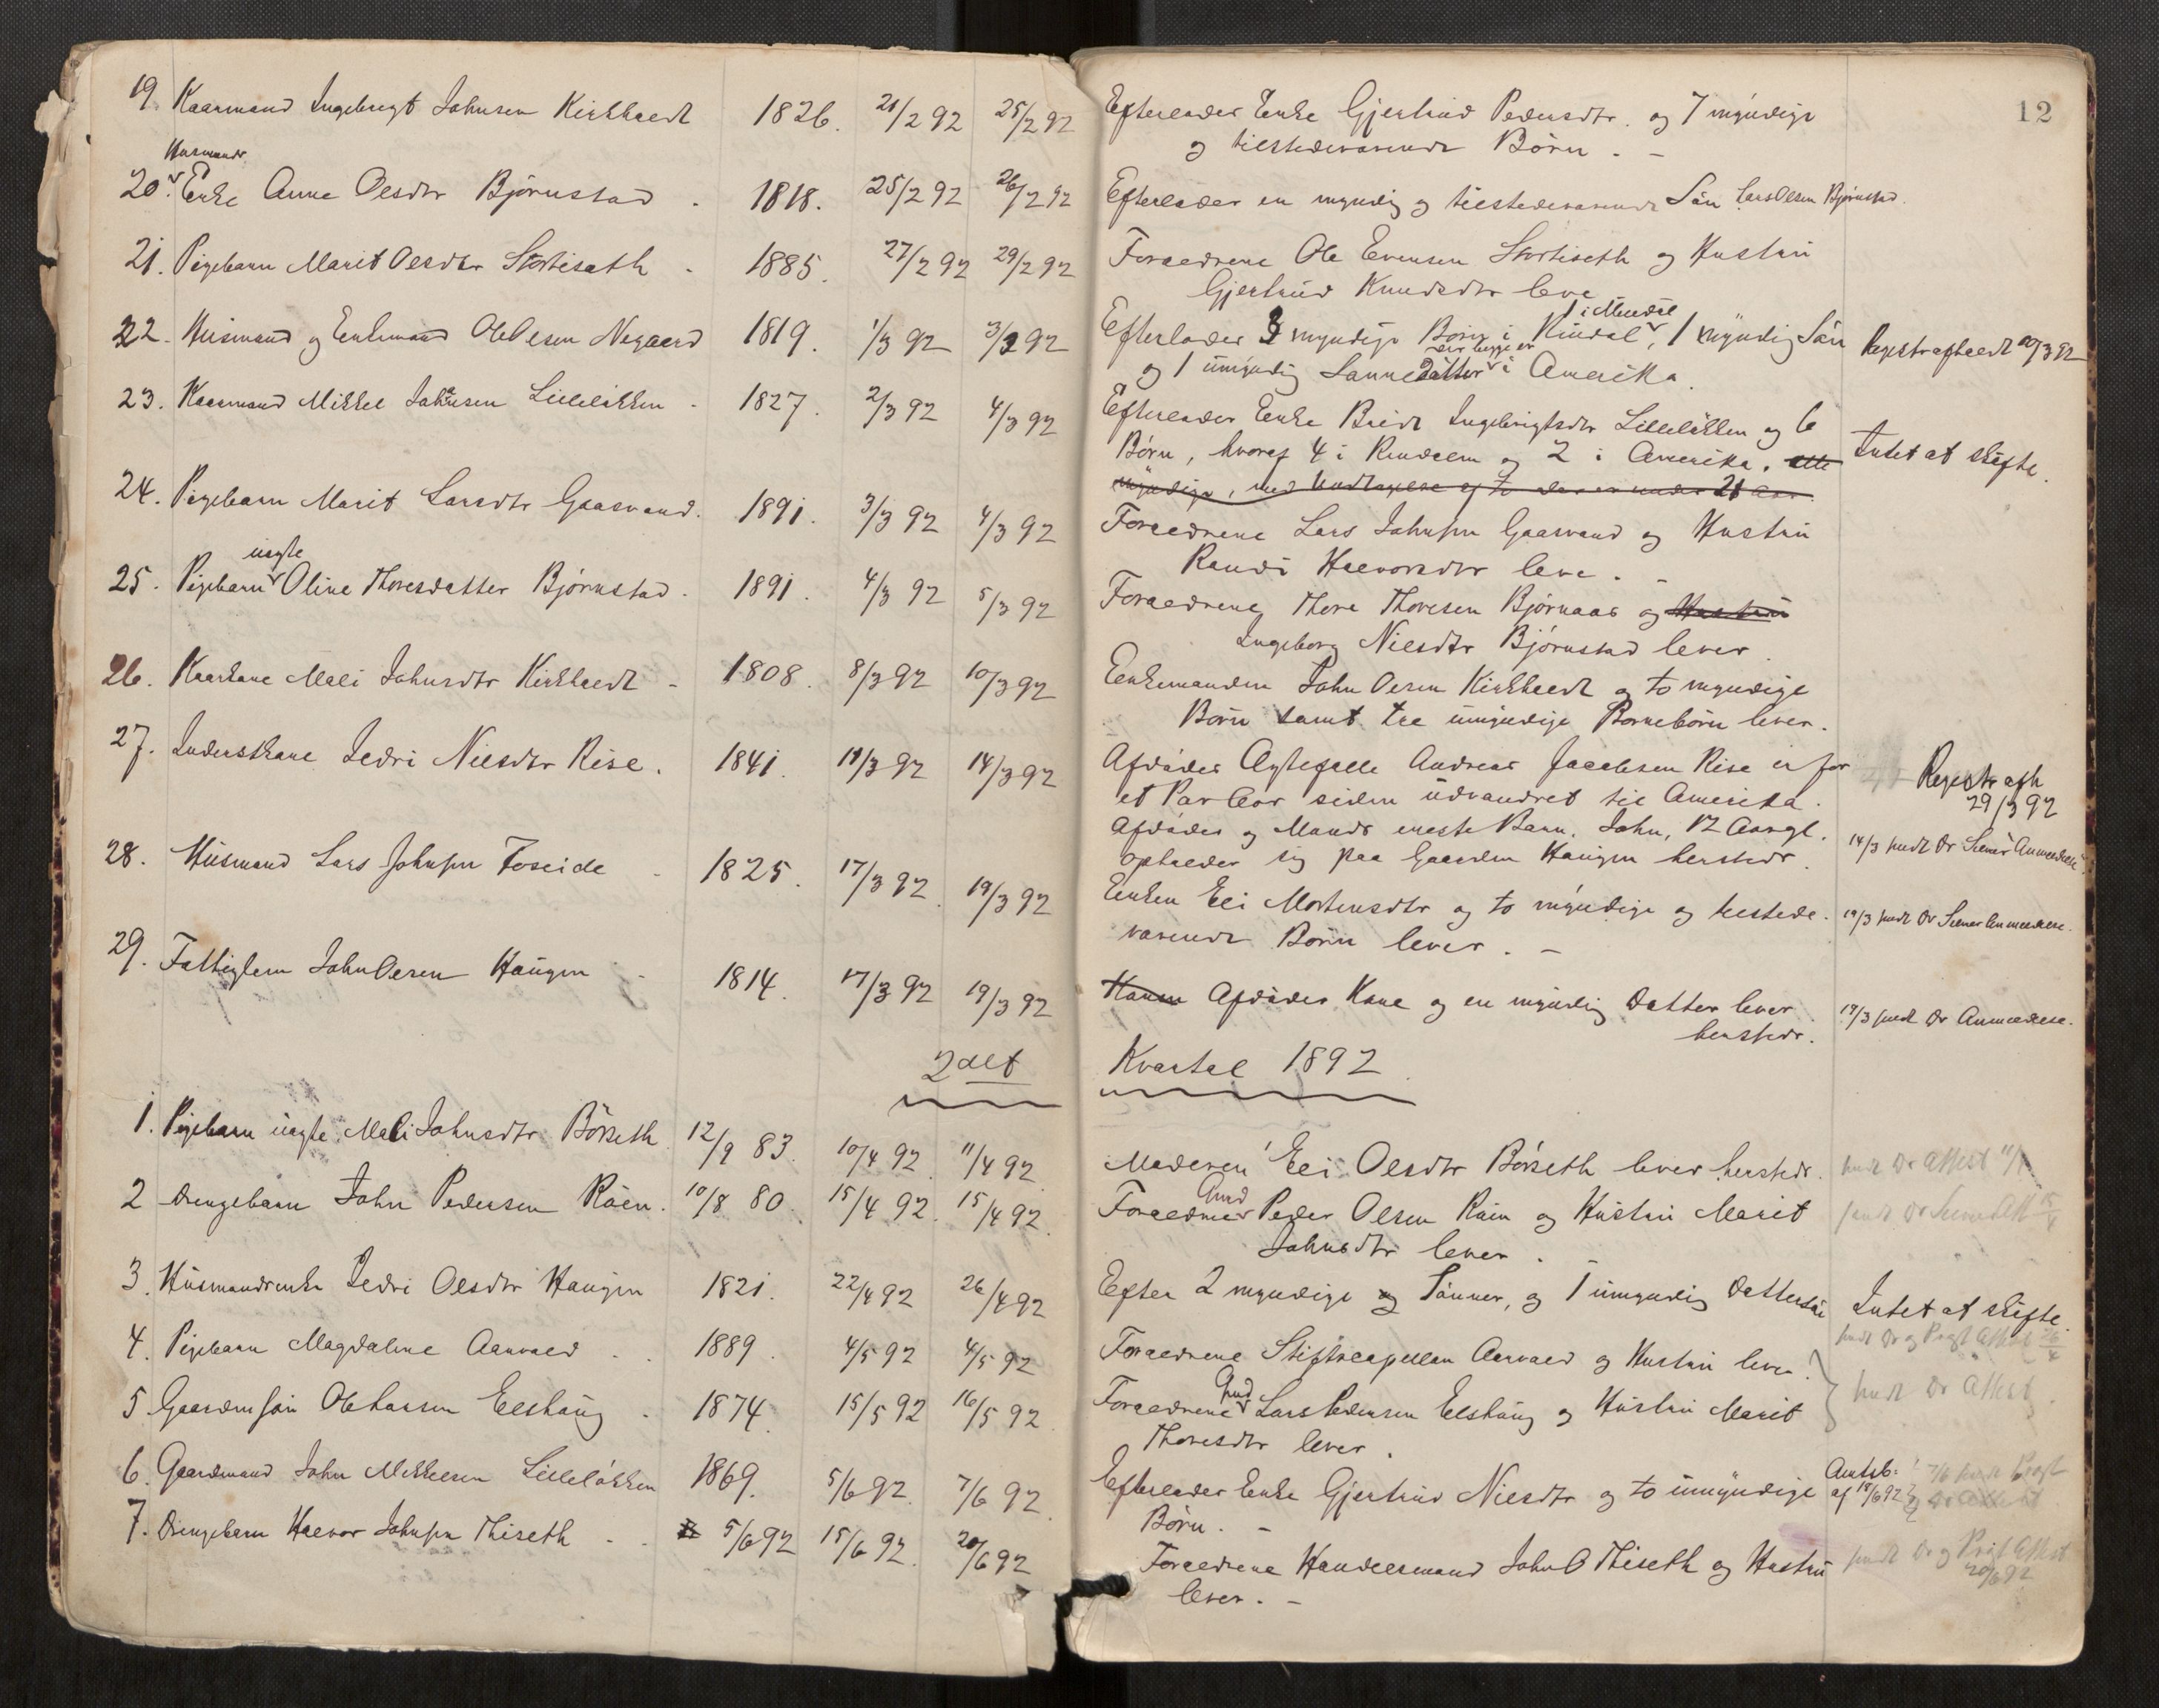 12
19. Kaarmand Ingebrigt Johnsen Kirkholdt 1826. 21/2 92 25/2 92 Efterlader Enke Gjertrud Pedersdtr. og 7 myndige
og tilstedeværende Börn. -
Husmands
20. Enke Anne Olsdtr Björnstad . 1818. 25/2 92 26/2 92 Efterlader en myndig og tilstedeværende Sön Lars Olsen Björnstad.
21. Pigebarn Marit Olsdtr Stortiseth . 1885. 27/2 92 29/2 92 Forældrene Ole Evensen Stortiseth og Hustru
Gjertrud Knudsdtr leve
1 i Meldal
22. Husmand og Enkemand Ole Olsen Negaard 1819. 1/3 92 3/3 92 Efterlader 3 myndige Börn i Rindal, 1 myndig Sön Registr afholdt 29/3 92
der begge er
og 1 umyndig Sönnedatter i Amerika.
23. Kaarmand Mikkel Johnsen Lillelökken - 1827. 2/3 92 4/3 92 Efterlader Enke Beret Ingebrigtsdtr Lillelökken og 6
Börn, hvoraf 4 i Rindalen og 2 i Amerika. alle Intet at skifte.
myndige, med Undtagelse af to der er under 21 Aar.
24. Pigebarn Marit Larsdtr Gaasvand. 1891. 3/3 92 4/3 92 Forældrene Lars Johnsen Gaasvand og Hustru
Randi Halvorsdtr leve. -
uægte
25. Pigebarn Oline Thoresdatter Björnstad. 1891. 4/3 92 5/3 92 Forældrene Thore Thoresen Björnaas og Hustru
Ingeborg Nilsdtr Björnstad lever.
26. Kaarkone Mali Johnsdtr Kirkholdt - 1808. 8/3 92 10/3 92 Enkemanden John Olsen Kirkholdt og to myndige
Börn samt tre umyndige Börnebörn lever.
27. Inderstkone Sedri Nilsdtr Rise. 1841. 11/3 92 14/3 92 Afdödes Ægtefælle Andreas Jacobsen Rise er for Registr afh
et Par Aar siden udvandret til Amerika. 29/3 92
Afdödes og Mands eneste Barn, John, 12 Aargl. 14/3 sendt
opholder sig paa Gaarden Haugen herstedr.
28. Husmand Lars Johnsen Foseide - 1825. 17/3 92 19/3 92 Enken Eli Mortensdtr og to myndige og tilstede- 19/3 sendt
værende Börn lever. -
29. Fattiglem John Olsen Haugen . 1814. 17/3 92 19/3 92 Afdödes Kone og en myndig Datter lever 19/3 sendt Dr Anmeldelse.
herstedr.
2det Kvartal 1892
1. Pigebarn uægte Mali Johnsdtr Börseth 12/9 83. 10/4 92 11/4 92 Moderen Eli Olsdtr Börseth lever herstedr. sendt Dr Attest 11/4
Gmd
2 Drengebarn John Pedersen Röen. 10/8 80. 15/4 92. 15/4 92. Forældrene Peder Olsen Röen og Hustru Marit
Johnsdtr lever. -
3. Husmandsenke Sedri Olsdtr Haugen 1821. 22/4 92 26/4 92 Efter 2 myndige og Sönner, og 1 umyndig Dattersön Intet at skifte.
sendt Dr og Prgt Attest 26/4
4. Pigebarn Magdalene Aarvold . . 1889. 4/5 92 4/5 92 Forældrene Stiftscapellan Aarvold og Hustru lever.
Gmd sendt Dr Attest
5 Gaardmsön Ole Larsen Elshaug . 1874. 15/5 92 16/5 92. Forældrene Lars Pedersen Elshaug og Hustru Marit
Thoresdtr lever.
6. Gaardmand John Mikkelsen Lillelökken 1869. 5/6 92. 7/6 92. Efterlader Enke Gjertrud Nilsdtr og to umyndige
Börn. -
7. Drengebarn Halvor Johnsen Thiseth . . 5/6 92 15/6 92. 20/6 92 Forældrene Handelsmand John O Thiseth og Hustru sendt Dr og Prgt Attest
lever. - 20/6 92